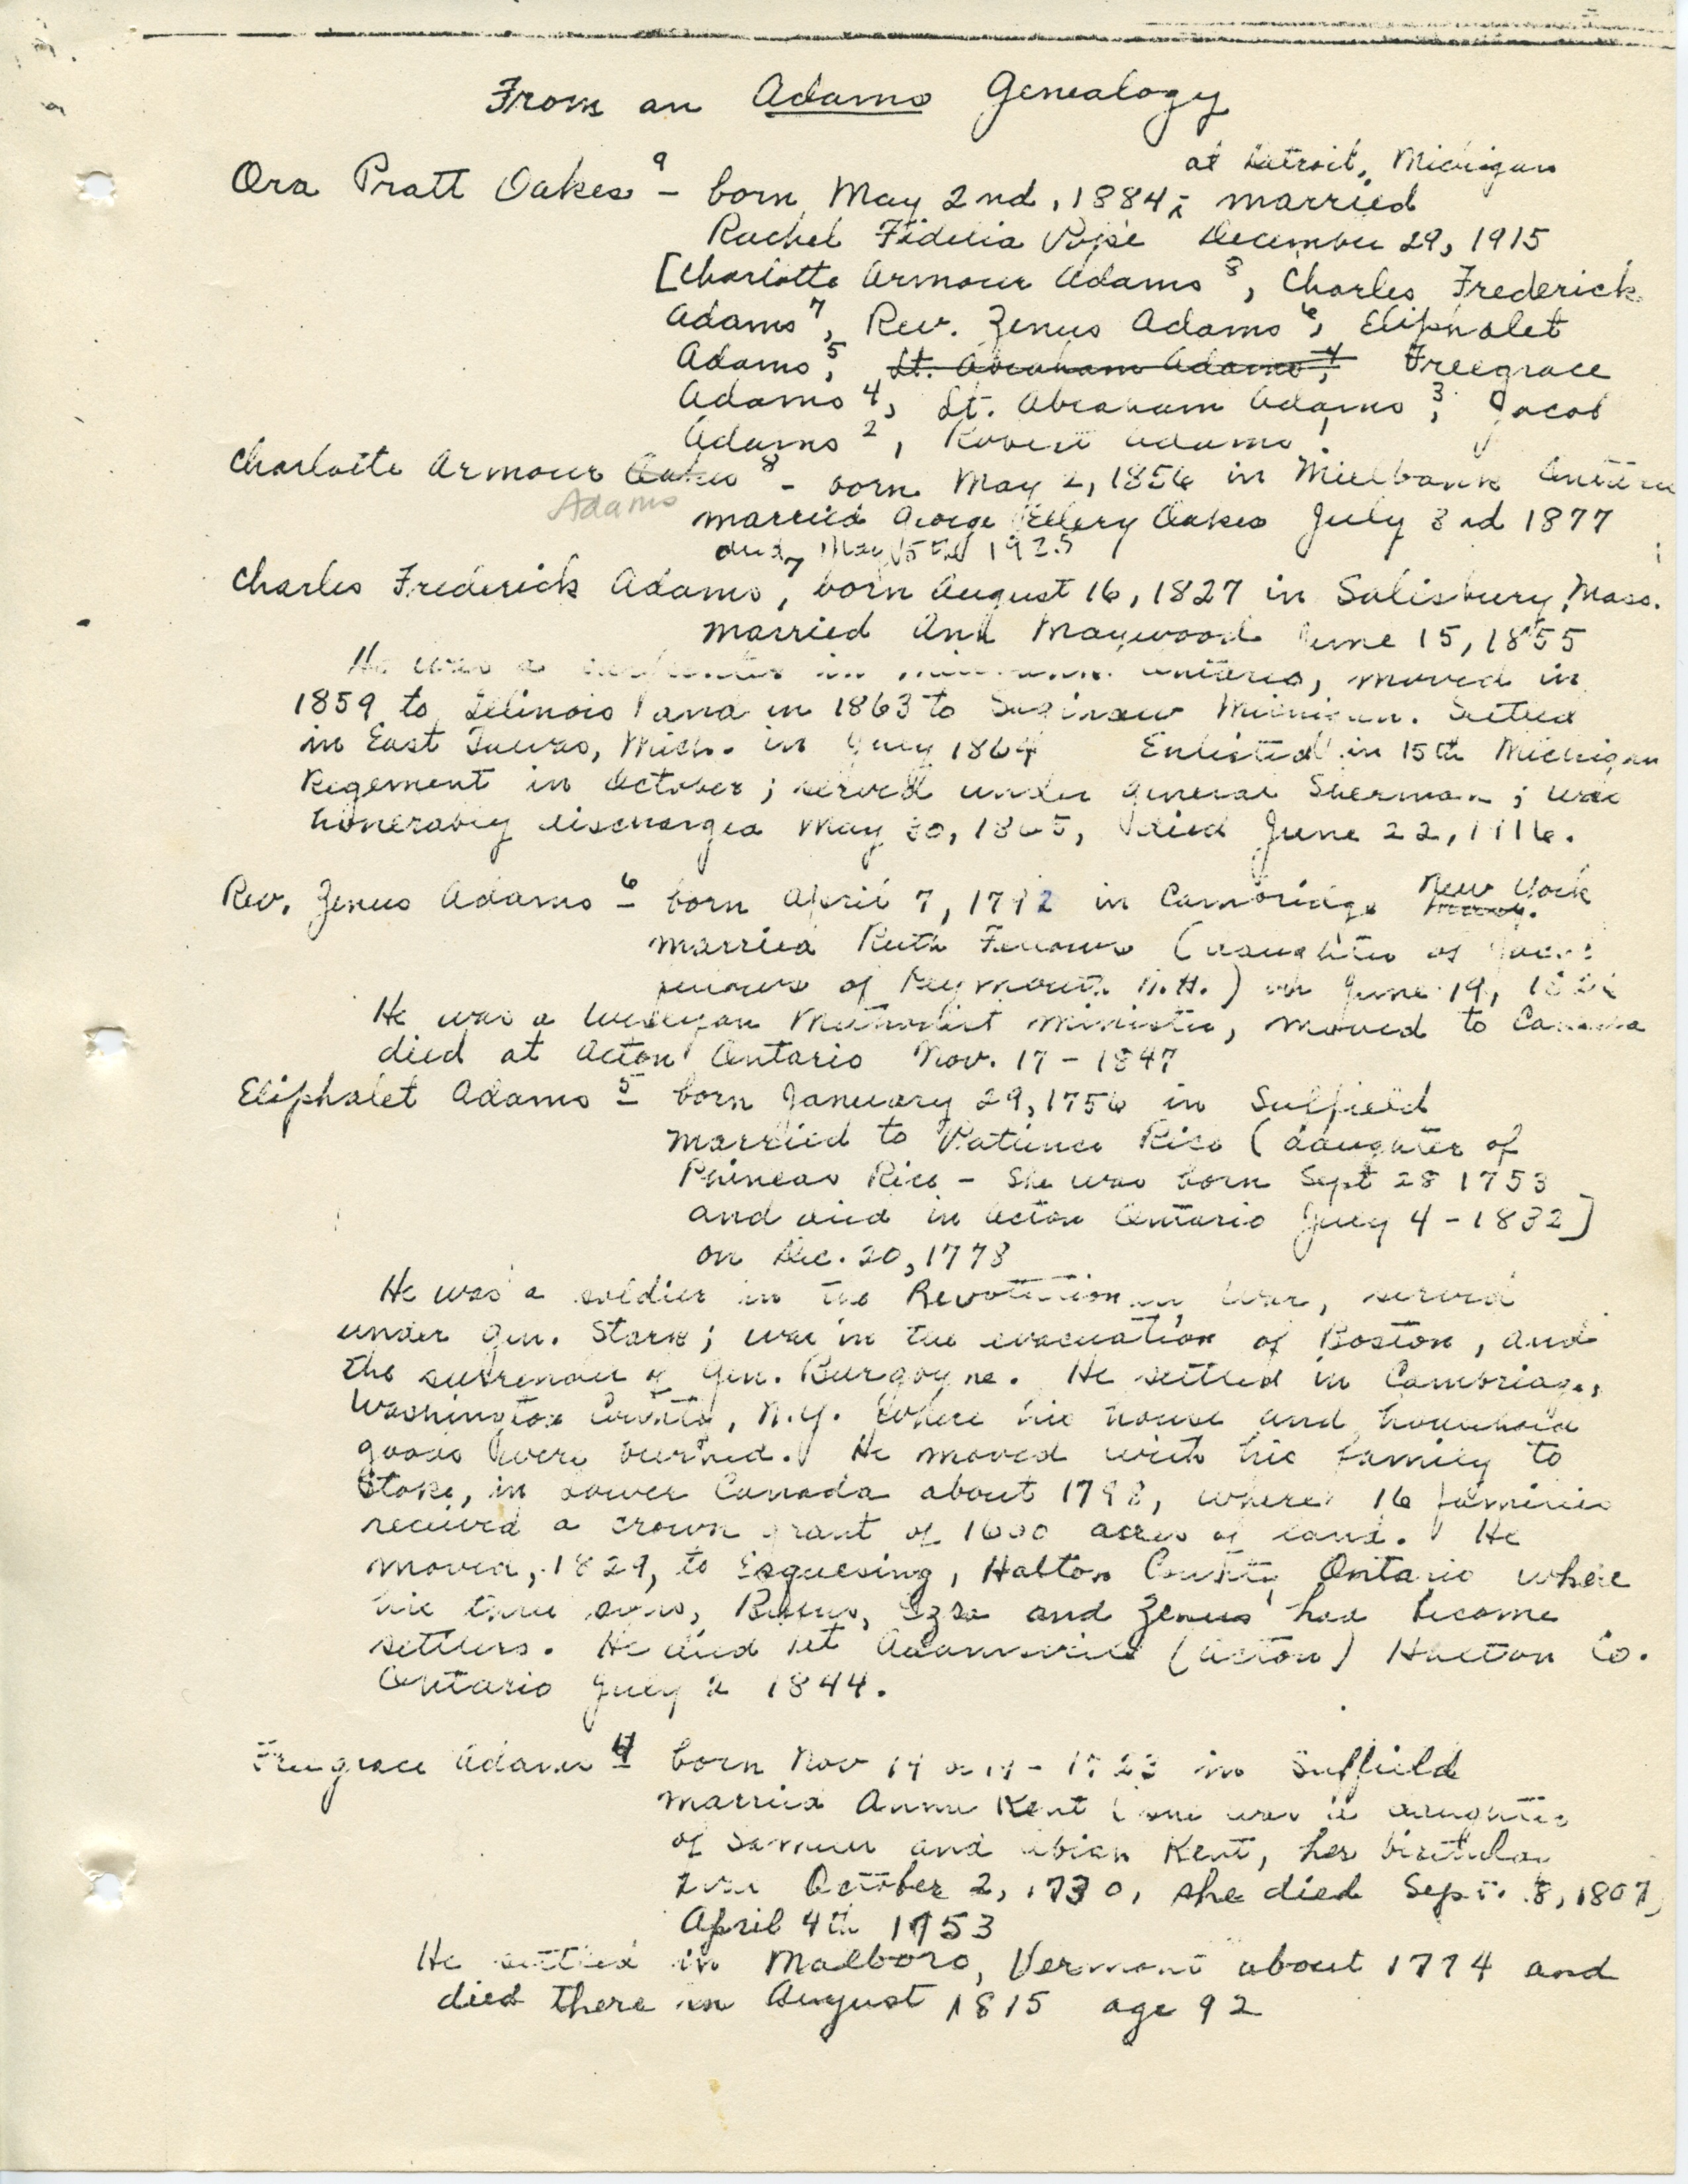 From an Adams Genealogy
at Detroit, Michigan
Ora Pratt Oakes 9 - born May 2nd, 1884; married
Rachel Fidelia Pope December 29, 1915
[Charlotte Armour Adams 8, Charles Frederick
Adams 7, Rev. Zenus Adams 6, Eliphalet
Adams 5, Lt. Abraham Adams 4, Freegrace
Adams 4, Lt. Abraham Adams 3, Jacob
Adams 2, Robert Adams 1
Charlotte Armour Oakes 8 - born May 2, 1856 in Millbank Ontario
Adams
married George Ellery Oakes July 3rd 1877
died May 15th 1925
Charles Frederick Adams 7, born August 16, 1827 in Salisbury, Mass.
married Ann Maywood June 15, 1855
He was a in Ontario, moved in
1859 to Illinois and in 1863 to Saginaw Michigan. Settled
in East Tawas, Mich. in July 1864 Enlisted in 15th Michigan
Regement in October; served under General Sherman; was
honerably discharged May 30, 1865, died June 22,
Rev. Zenus Adams 6 - born April 7, 1792 in Cambridge New York
married Ruth Fellows (daughter of
Fellows of Plymouth N.H.) on June 19,
He was a Wesleyan Methodist minister, moved to Canada
died at Acton Ontario Nov. 17 - 1847
Eliphalet Adams 5 - born January 29, 1756 in Suffield
married to Patience Rice (daughter of
Phineas Rice - she was born Sept 28 1753
and died in Acton Ontario July 4 - 1832]
on Dec. 20, 1778
He was a soldier in the Revolutionary War, served
under Gen. Stark; was in the evacuation of Boston, and
the surrender of Gen. Burgoyne. He settled in Cambridge,
Washington County, N.Y. Where his house and household
goods were burned. He moved with his family to
Stoke, in Lower Canada about 1798, where 16 families
received a crown grant of 1600 acres of land. He
moved, 1829, to Esquesing, Halton County Ontario where
his three sons, Rufus, Ezra and Zenus had become
settlers. He died at Adamsville (Acton) Halton Co.
Ontario July 2 1844.
Freegrace Adams 4 born Nov 14 in Suffield
married Anna Kent (she was a daughter
of Samuel and Abiah Kent, her birthday
was October 2, 1730, she died Sept. 8, 1807)
April 4th 1753
He settled in Malboro, Vermont about 1774 and
died there in August 1815 age 92